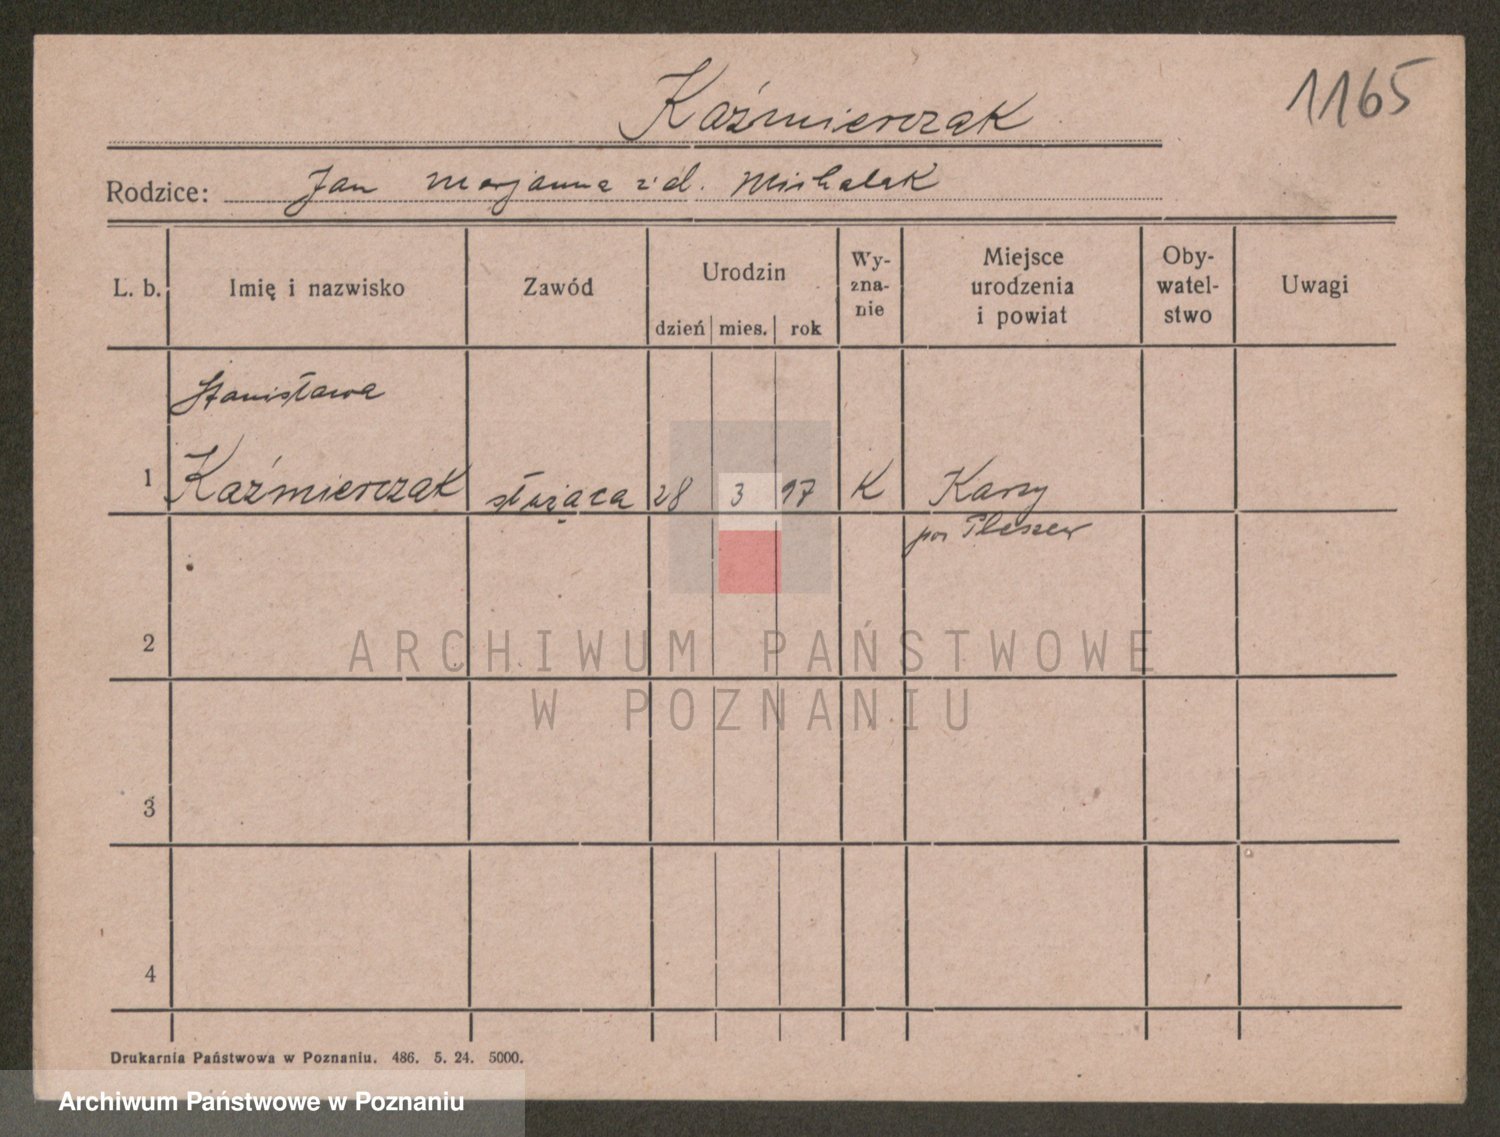 1165
Kaźmierczak
Rodzice: Jan Marjanna zd. Michalak
L. b.
Imię i nazwisko
Zawód
Urodzin
dzień mies. rok
Wy-
zna-
nie
Miejsce
urodzenia
i powiat
Oby-
watel-
stwo
Uwagi
Stanisława
1 Kaźmierczak służąca 28 3 97 K Karsy
pow Pleszew
2
3
4
ARCHIWUM PAŃSTWOWE
W POZNANIU
Drukarnia Państwowa w Poznaniu. 486. 5. 24. 5000.
Archiwum Państwowe w Poznaniu